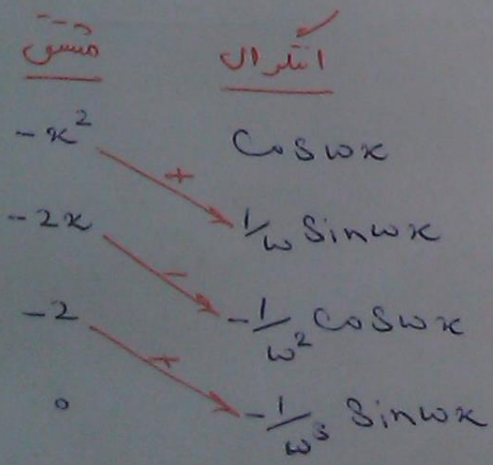 مشتق انتگرال
-x² Cos ωx
+
-2x 1/ω Sin ωx
-
-2 -1/ω² Cos ωx
+
0 -1/ω³ Sin ωx